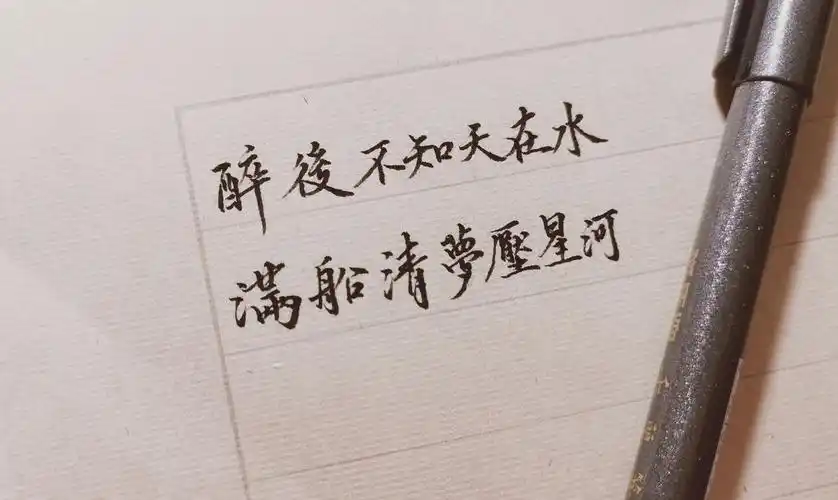 醉後不知天在水
滿船清夢壓星河